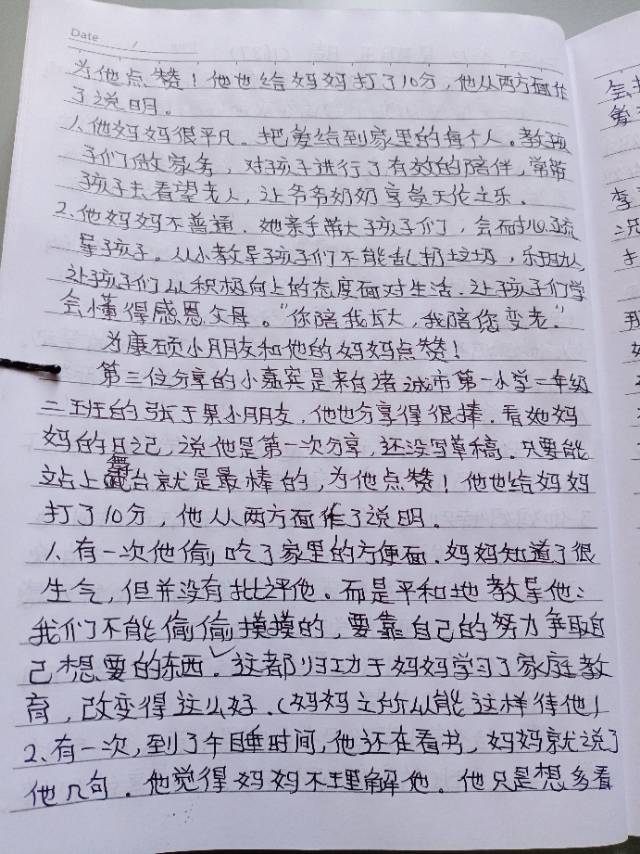 Date /
为他点赞！他也给妈妈打了10分，他从两方面作
了说明。
1、他妈妈很平凡。把爱给到家里的每个人。教孩
子们做家务，对孩子进行了有效的陪伴，常带
孩子去看望老人，让爷爷奶奶享受天伦之乐。
2、他妈妈不普通。她亲手带大孩子们，会耐心疏
导孩子。从小教导孩子们不能乱扔垃圾，乐于助人
让孩子们以积极向上的态度面对生活。让孩子们学
会懂得感恩父母。"你陪我长大，我陪您变老。"
为康硕小朋友和他的妈妈点赞！
第三位分享的小嘉宾是来自诸城市第一小学二年级
三班的张于果小朋友，他也分享得很棒。看她妈
妈的日记，说他是第一次分享，还没写草稿。只要能
站上舞台就是最棒的，为他点赞！他也给妈妈
打了10分，他从两方面作了说明。
1、有一次他偷吃了家里的方便面。妈妈知道了很
生气，但并没有批评他。而是平和地教导他：
我们不能偷偷摸摸的，要靠自己的努力争取自
己想要的东西。这都归功于妈妈学习了家庭教
育，改变得这么好。（妈妈之所以能这样待他！
2、有一次，到了午睡时间，他还在看书，妈妈就说了
他几句。他觉得妈妈不理解他。他只是想多看